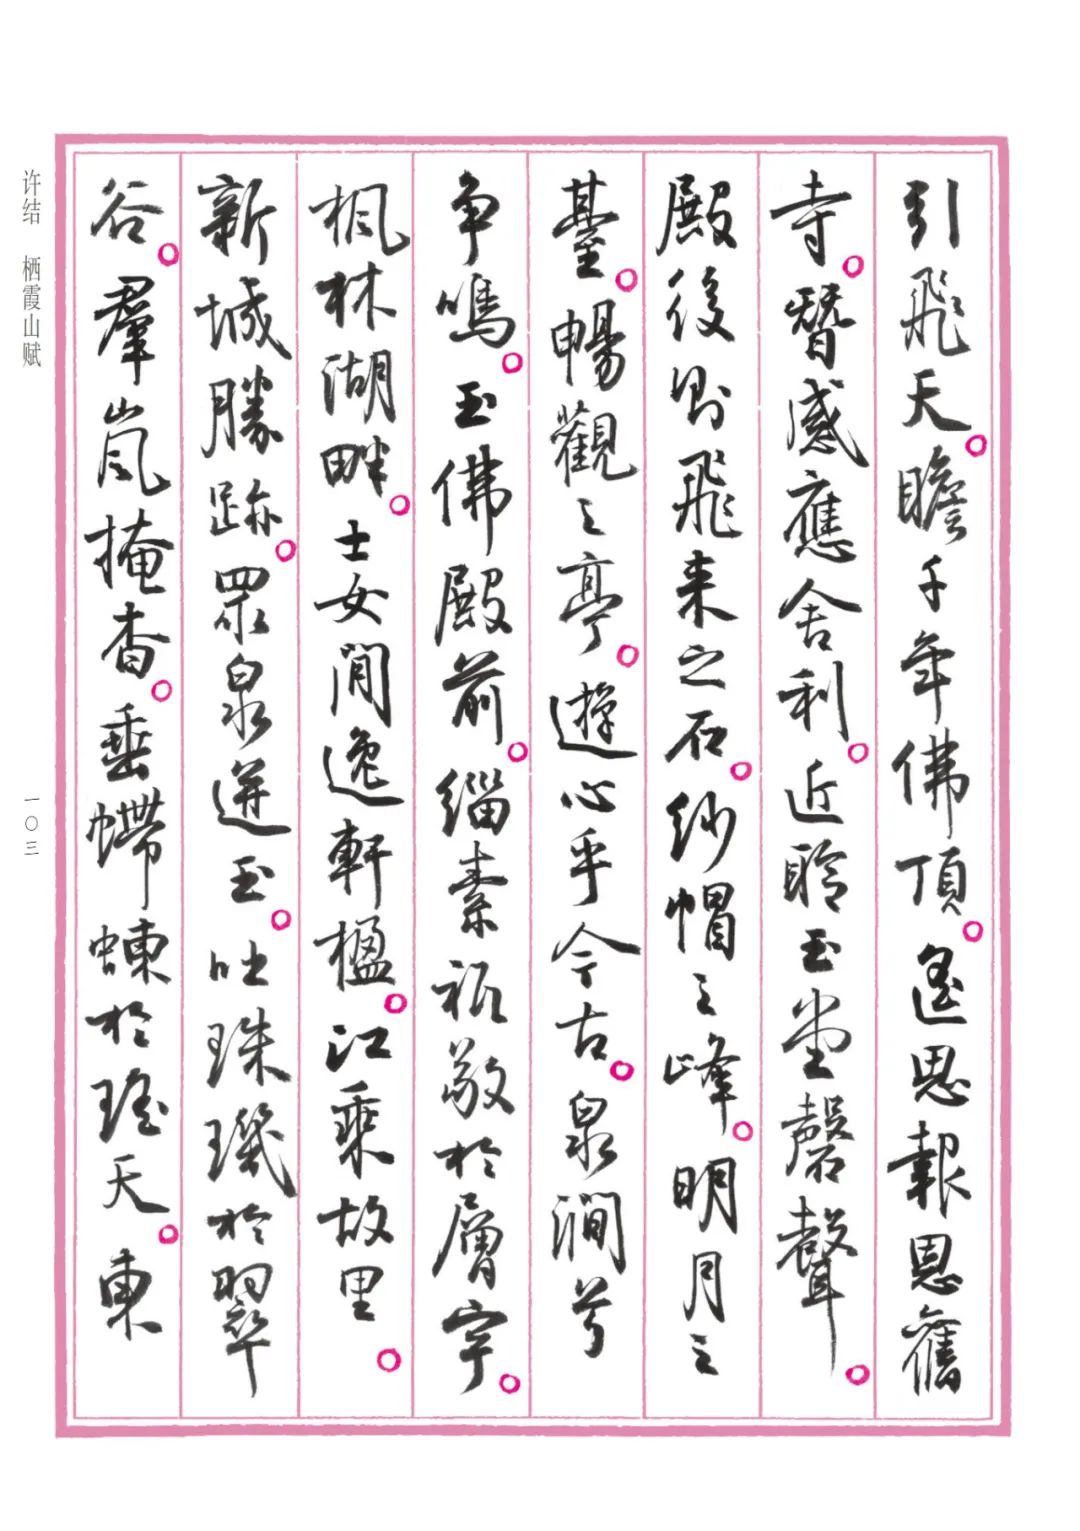 引飛天。瞻千年佛頂。遙思報恩舊
寺。瞀感應舍利。近聆玉堂磬聲。
殿後則飛來之石。紗帽之峰。明月之
臺。暢觀之亭。遊心乎今古。泉澗兮
爭鳴。玉佛殿前。緇素祗敬於層宇。
楓林湖畔。士女閒逸軒楹。江乘故里。
新城勝跡。眾泉迸玉。吐珠璣於翠
谷。羣嵐掩杳。垂螮蝀於瑤天。東
许结 栖霞山赋
一〇三